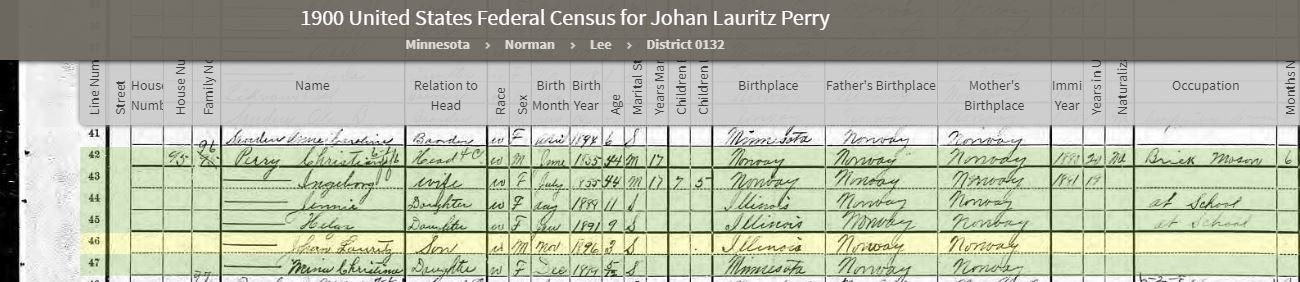 1900 United States Federal Census for Johan Lauritz Perry
Minnesota › Norman › Lee › District 0132
Line Num Street House Numb House Nu Family No Name Relation to Head Race Sex Birth Month Birth Year Age Marital St Years Mar Children B Children L Birthplace Father's Birthplace Mother's Birthplace Immi Year Years in U Naturaliz Occupation Months N
41 Anne Caroline w F 1894 6 S Minnesota Norway Norway
42 95 Perry Christian Head w M June 1855 44 M 17 Norway Norway Norway 20 Na Brick Mason 6
43 Ingeborg wife w F July 1855 44 M 17 7 5 Norway Norway Norway 1881 19
44 Jennie Daughter w F Aug 11 S Illinois Norway Norway at School
45 Helga Daughter w F 1891 9 S Illinois Norway Norway at School
46 Johan Lauritz Son w M Nov 1896 3 S Illinois Norway Norway
47 Mina Christine Daughter w F Dec S Minnesota Norway Norway